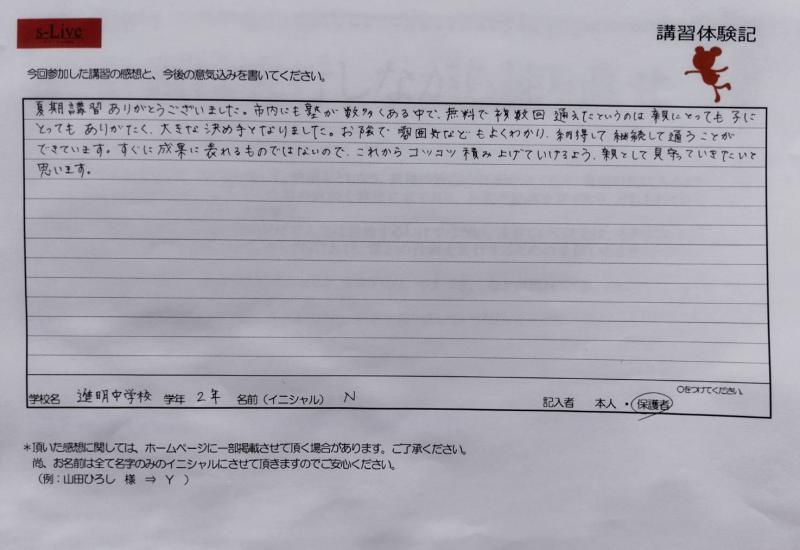 s-Live
講習体験記
今回参加した講習の感想と、今後の意気込みを書いてください。
夏期講習ありがとうございました。市内にも塾が数多くある中で、無料で複数回通えたというのは親にとっても子に
とってもありがたく、大きな決め手となりました。お陰で雰囲気などもよくわかり、納得して継続して通うことが
できています。すぐに成果に表れるものではないので、これからコツコツ積み上げていけるよう、親として見守っていきたいと
思います。
○をつけてください。
学校名 進明中学校 学年 2年 名前(イニシャル) N 記入者 本人 ・ 保護者
＊頂いた感想に関しては、ホームページに一部掲載させて頂く場合があります。ご了承ください。
尚、お名前は全て名字のみのイニシャルにさせて頂きますのでご安心ください。
(例:山田ひろし 様 ⇒ Y )